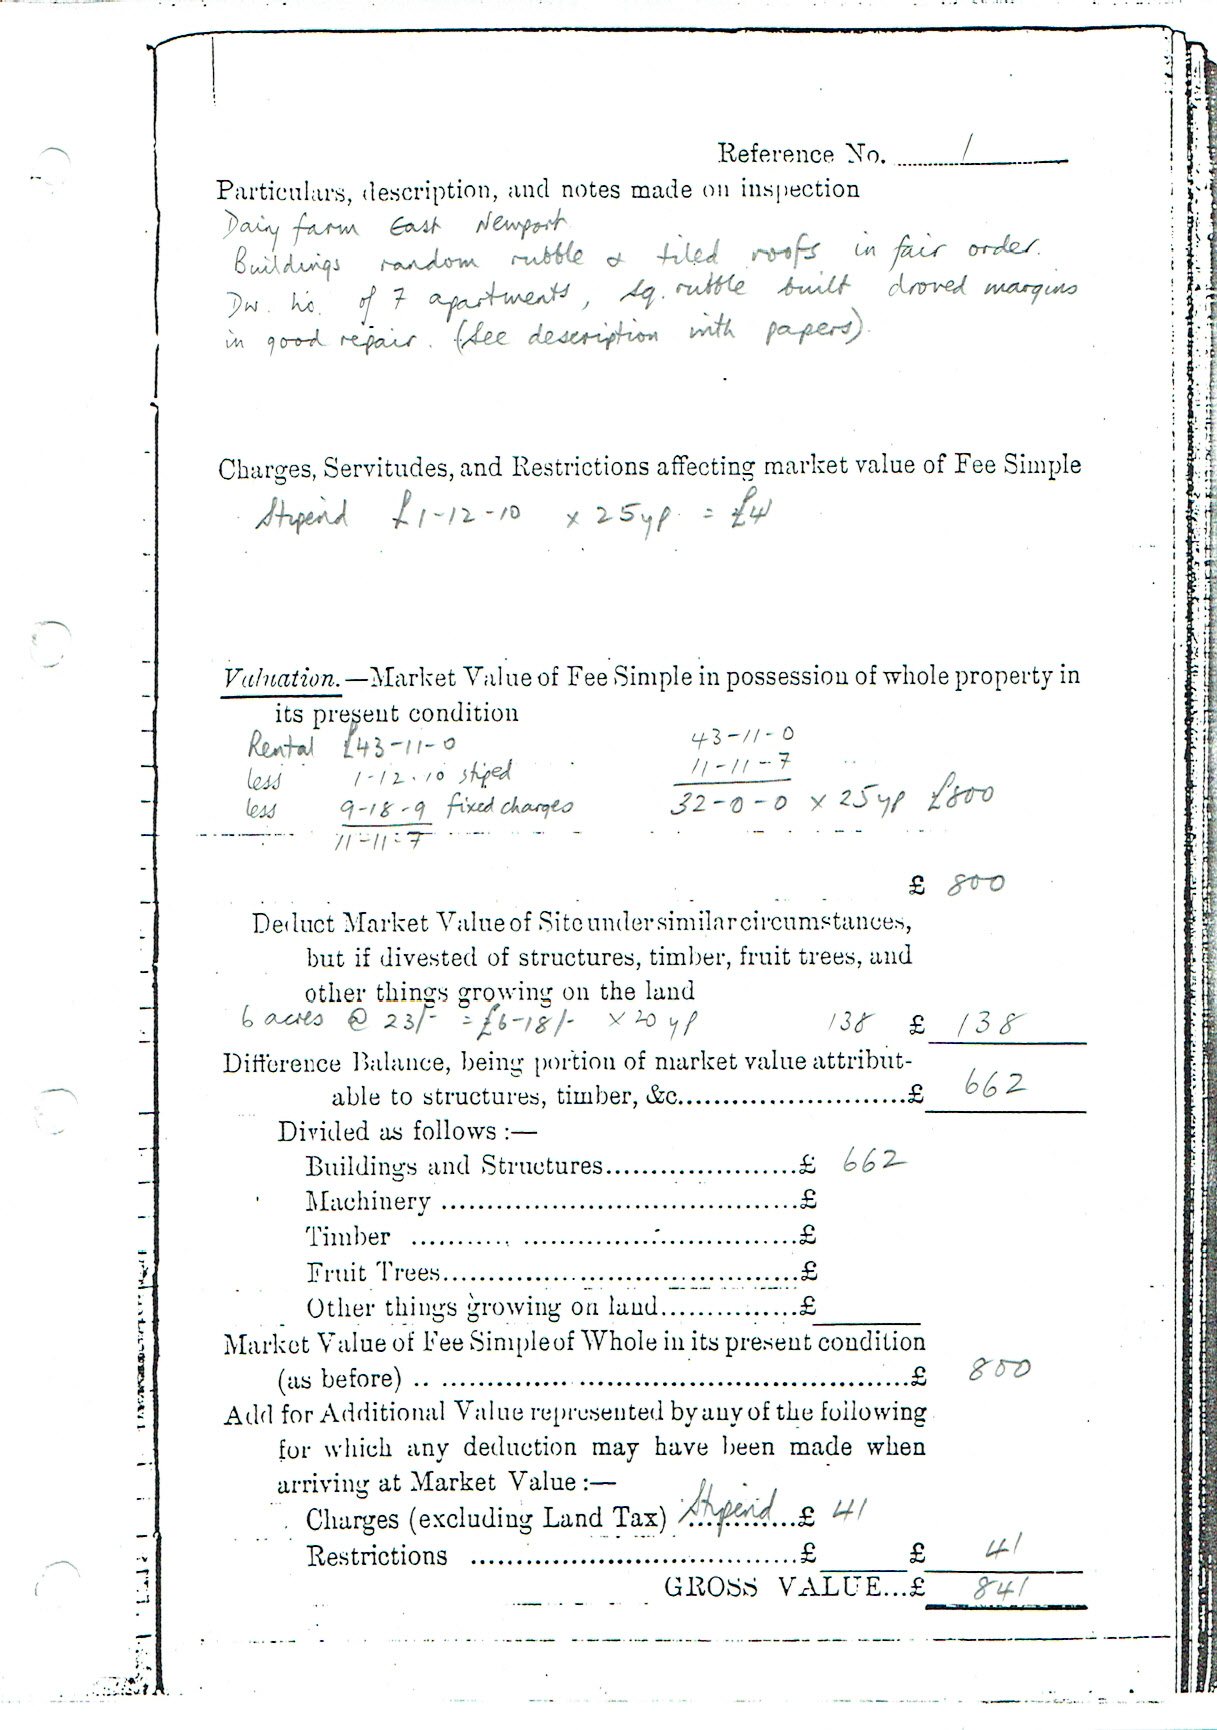 Reference No. 1
Particulars, description, and notes made on inspection
Dairy farm East Newport
Buildings random rubble & tiled roofs in fair order.
Dw. ho. of 7 apartments, sq. rubble built droved margins
in good repair. (See description with papers).
Charges, Servitudes, and Restrictions affecting market value of Fee Simple
Stipend £1-12-10 x 25 yp. = £41
Valuation.—Market Value of Fee Simple in possession of whole property in
its present condition
Rental £43-11-0 43-11-0
less 1-12-10 stiped 11-11-7
less 9-18-9 fixed charges 32-0-0 x 25 yp £800
11-11-7
£ 800
Deduct Market Value of Site under similar circumstances,
but if divested of structures, timber, fruit trees, and
other things growing on the land
6 acres @ 23/- = £6-18/- x 20 yp 138 £ 138
Difference Balance, being portion of market value attribut-
able to structures, timber, &c.........................£ 662
Divided as follows :—
Buildings and Structures......................£ 662
Machinery ........................................£
Timber ........................................£
Fruit Trees........................................£
Other things growing on land...............£
Market Value of Fee Simple of Whole in its present condition
(as before) ........................................£ 800
Add for Additional Value represented by any of the following
for which any deduction may have been made when
arriving at Market Value :—
Charges (excluding Land Tax) Stipend £ 41
Restrictions .....................................£ £ 41
GROSS VALUE...£ 841